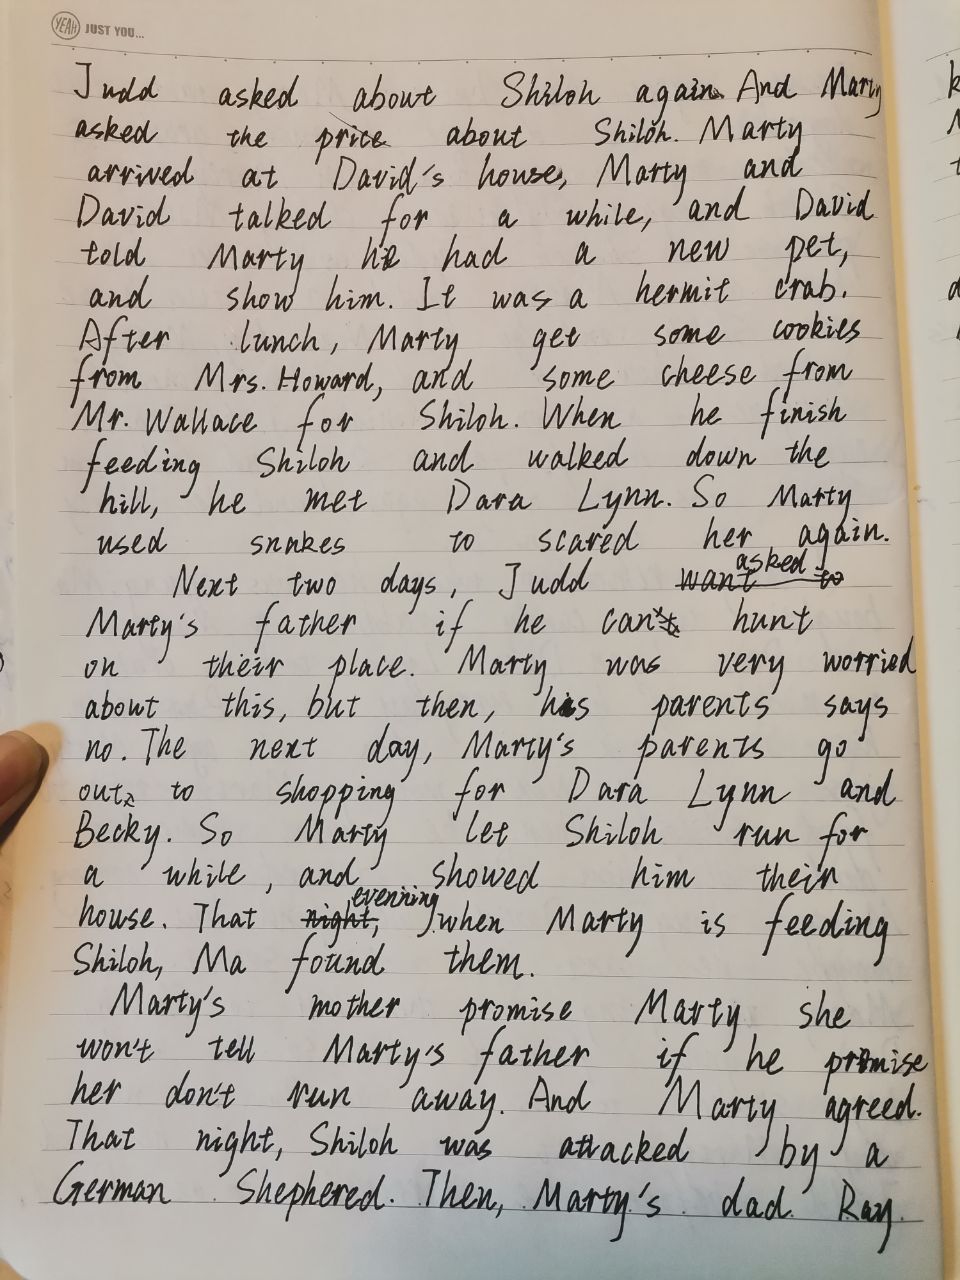 YEAH JUST YOU...
Judd asked about Shiloh again. And Marty
asked the price about Shiloh. Marty
arrived at David's house, Marty and
David talked for a while, and David
told Marty he had a new pet,
and show him. It was a hermit crab.
After lunch, Marty get some cookies
from Mrs. Howard, and some cheese from
Mr. Wallace for Shiloh. When he finish
feeding Shiloh and walked down the
hill, he met Dara Lynn. So Marty
used snakes to scared her again.
Next two days, Judd asked
Marty's father if he can hunt
on their place. Marty was very worried
about this, but then, his parents says
no. The next day, Marty's parents go
out to shopping for Dara Lynn and
Becky. So Marty let Shiloh run for
a while, and showed him their
house. That evenning, when Marty is feeding
Shiloh, Ma found them.
Marty's mother promise Marty she
won't tell Marty's father if he promise
her don't run away. And Marty agreed.
That night, Shiloh was attacked by a
German Shephered. Then, Marty's dad Ray